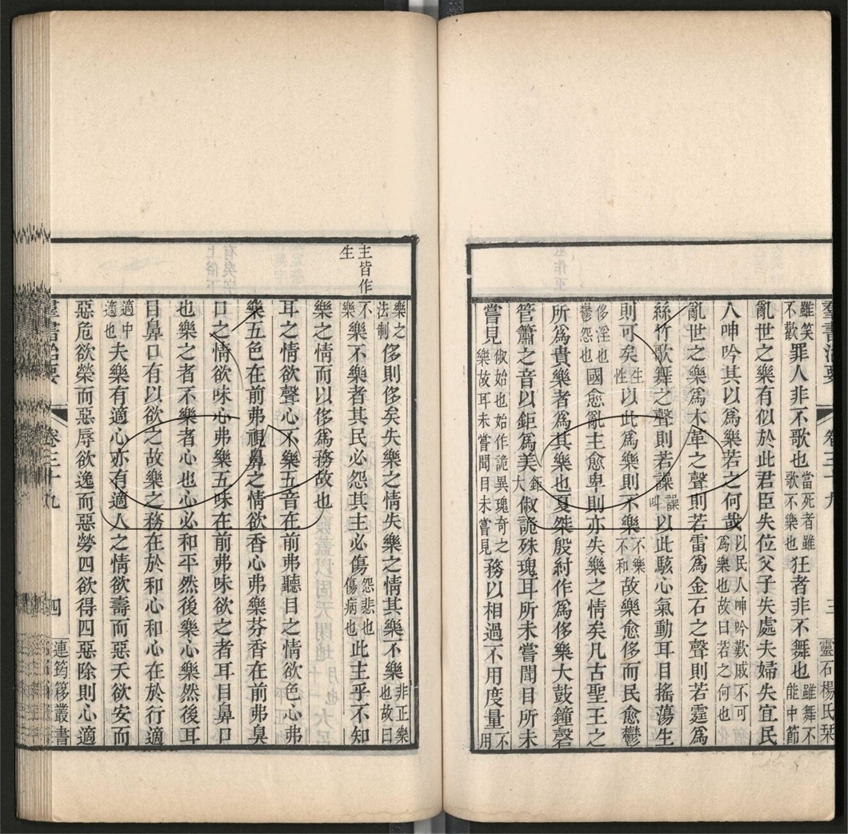 羣書治要 卷三十九 三 靈石楊氏栞
雖笑不歡罪人非不歌也當死者雖歌不樂也狂者非不舞也雖舞不能中節
亂世之樂有似於此君臣失位父子失處夫婦失宜民
人呻吟其以爲樂若之何哉以民人呻吟歎戚不可爲樂也故曰若之何也
亂世之樂爲木革之聲則若雷爲金石之聲則若霆爲
絲竹歌舞之聲則若譟譟叫以此駭心氣動耳目搖蕩生
則可矣生性以此爲樂則不樂不樂不和故樂愈侈而民愈鬱
侈淫也鬱怨也國愈亂主愈卑則亦失樂之情矣凡古聖王之
所爲貴樂者爲其樂也夏桀殷紂作爲侈樂大鼓鐘磬
管簫之音以鉅爲美鉅大俶詭殊瑰耳所未嘗聞目所未
嘗見俶始也始作詭異瑰奇之樂故耳未嘗聞目未嘗見務以相過不用度量不用
樂之法制侈則侈矣失樂之情失樂之情其樂不樂非正樂也故曰
主皆作生
不樂樂不樂者其民必怨其主必傷怨悲也傷病也此主乎不知
樂之情而以侈爲務故也
耳之情欲聲心不樂五音在前弗聽目之情欲色心弗
樂五色在前弗視鼻之情欲香心弗樂芬香在前弗臭
口之情欲味心弗樂五味在前弗味欲之者耳目鼻口
也樂之者不樂者心也心必和平然後樂心樂然後耳
目鼻口有以欲之故樂之務在於和心和心在於行適
適中適也夫樂有適心亦有適人之情欲壽而惡夭欲安而
惡危欲榮而惡辱欲逸而惡勞四欲得四惡除則心適
羣書治要 卷三十九 四 連筠簃叢書